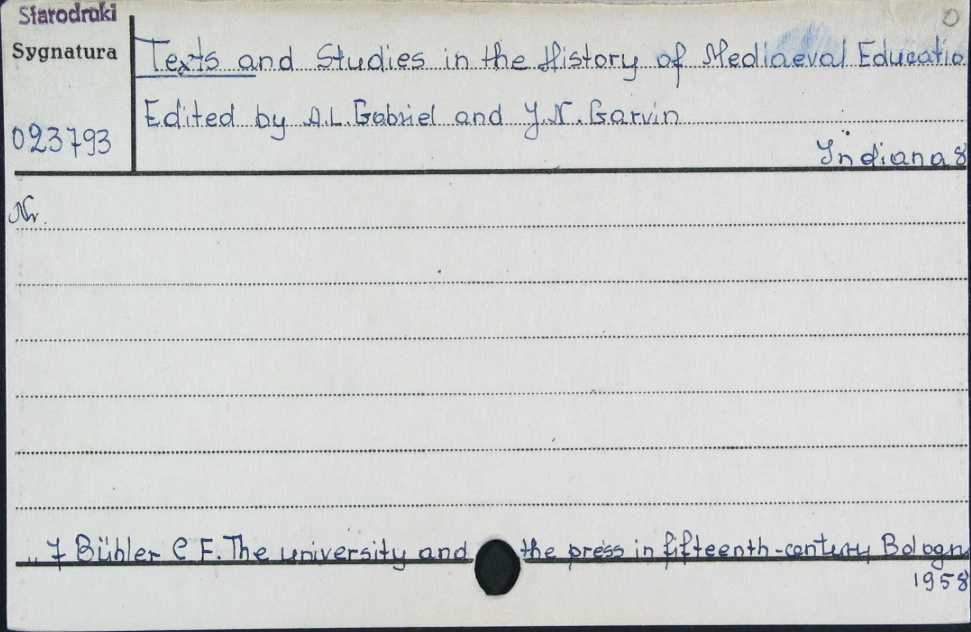 Starodruki
Sygnatura
023793
Texts and Studies in the History of Mediaeval Educatio
Edited by A.L. Gabriel and J.N. Garvin
Indiana 8
Nr.
„ 7 Bühler C F. The university and the press in fifteenth-century Bologn
1958
0